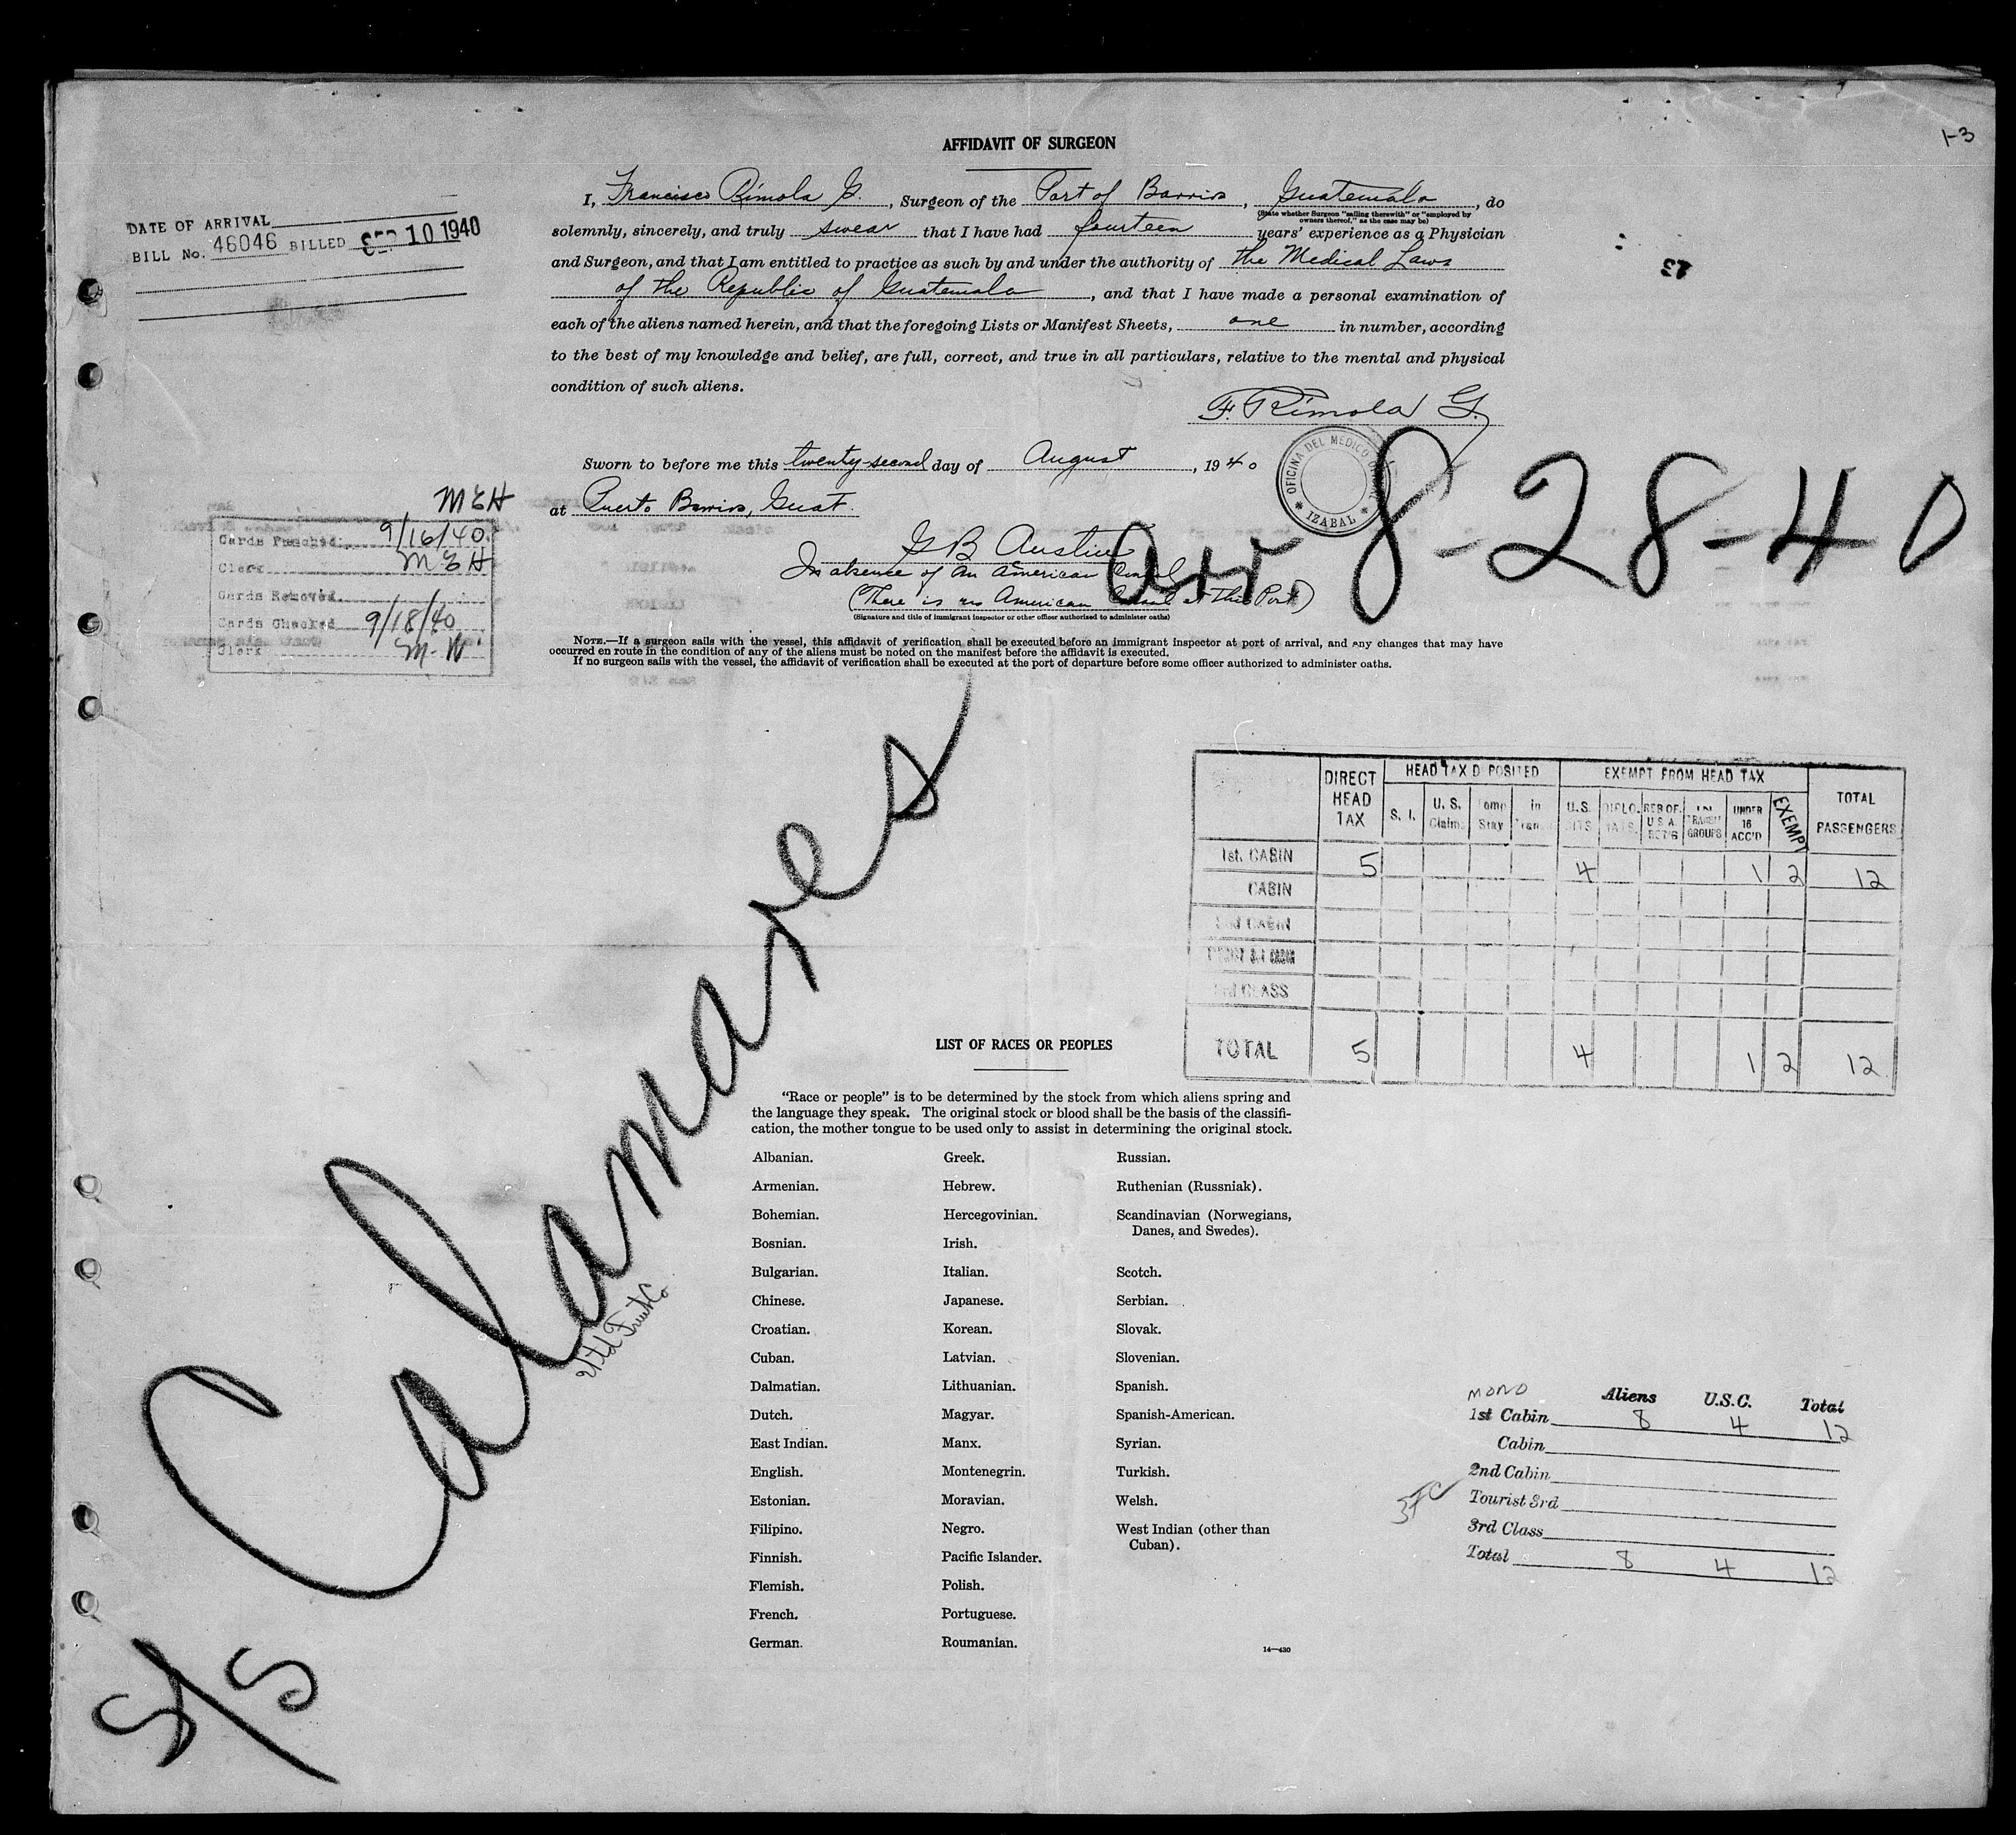 1-3
AFFIDAVIT OF SURGEON
I, Francisco Rimola G., Surgeon of the Port of Barrios, Guatemala, do
(State whether Surgeon "sailing therewith" or "employed by
owners thereof," as the case may be)
solemnly, sincerely, and truly swear that I have had fourteen years' experience as a Physician
and Surgeon, and that I am entitled to practice as such by and under the authority of the Medical Laws
of the Republic of Guatemala, and that I have made a personal examination of
each of the aliens named herein, and that the foregoing Lists or Manifest Sheets, one in number, according
to the best of my knowledge and belief, are full, correct, and true in all particulars, relative to the mental and physical
condition of such aliens.
F. Rimola G.
DATE OF ARRIVAL
BILL No. 46046 BILLED SEP 10 1940
23
Sworn to before me this twenty-second day of August, 1940
at Puerto Barrios, Guat.
OFICINA DEL MEDICO
IZABAL
G B Austin
In absence of an American Consul
(There is no American Consul at this Port)
(Signature and title of immigrant inspector or other officer authorized to administer oaths)
arr 8-28-40
MEH
Cards Punched 9/16/40
Clerk MEH
Cards Removed
Cards Checked 9/18/40
Clerk M. W.
NOTE.—If a surgeon sails with the vessel, this affidavit of verification shall be executed before an immigrant inspector at port of arrival, and any changes that may have
occurred en route in the condition of any of the aliens must be noted on the manifest before the affidavit is executed.
If no surgeon sails with the vessel, the affidavit of verification shall be executed at the port of departure before some officer authorized to administer oaths.
DIRECT HEAD TAX HEAD TAX DEPOSITED EXEMPT FROM HEAD TAX TOTAL PASSENGERS
S. I. U. S. Claims Temp Stay In Trans U.S. CITS DIPLOMATS RES OF U S A RET'G IN TRANSIT GROUPS UNDER 16 ACC'D EXEMPT
1st. CABIN 5 4 1 2 12
CABIN
2nd CABIN
TOURIST 3rd CABIN
3rd CLASS
TOTAL 5 4 1 2 12
S/S Calamares
Utd Fruit Co
LIST OF RACES OR PEOPLES
"Race or people" is to be determined by the stock from which aliens spring and
the language they speak. The original stock or blood shall be the basis of the classifi-
cation, the mother tongue to be used only to assist in determining the original stock.
Albanian. Greek. Russian.
Armenian. Hebrew. Ruthenian (Russniak).
Bohemian. Hercegovinian. Scandinavian (Norwegians,
Danes, and Swedes).
Bosnian. Irish.
Bulgarian. Italian. Scotch.
Chinese. Japanese. Serbian.
Croatian. Korean. Slovak.
Cuban. Latvian. Slovenian.
Dalmatian. Lithuanian. Spanish.
Dutch. Magyar. Spanish-American.
East Indian. Manx. Syrian.
English. Montenegrin. Turkish.
Estonian. Moravian. Welsh.
Filipino. Negro. West Indian (other than
Cuban).
Finnish. Pacific Islander.
Flemish. Polish.
French. Portuguese.
German. Roumanian.
14—430
MONO Aliens U.S.C. Total
1st Cabin 8 4 12
Cabin
2nd Cabin
Tourist 3rd
3rd Class
Total 8 4 12